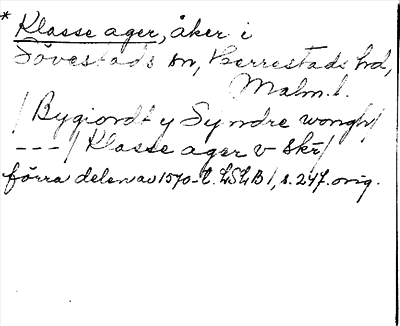 * Klasse ager, åker i
Sövestads sn, Herrestads hd,
Malm. l.
/ Bygiordt y Syndre wongh /
--- / Klasse ager v skr /
förra delen av 1570-t. LSLB 1, s. 247. orig.